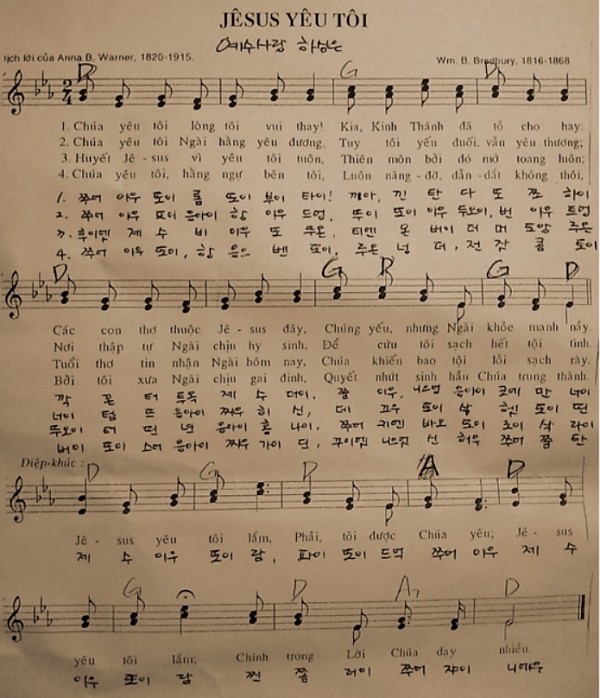 JÊSUS YÊU TÔI
예수사랑 하심은
lịch lời của Anna B. Warner, 1820-1915.
Wm. B. Bradbury, 1816-1868
D G D
2/4
1. Chúa yêu tôi lòng tôi vui thay! Kìa, Kinh Thánh đã tỏ cho hay:
2. Chúa yêu tôi Ngài hằng yêu đương, Tuy tôi yếu đuối, vẫn yêu thương;
3. Huyết Jê - sus vì yêu tôi tuôn, Thiên môn bởi đó mở toang luôn;
4. Chúa yêu tôi, hằng ngự bên tôi, Luôn nâng-đỡ, dẫn-dắt không thôi,
1. 쭈어 이우 또이 롬 또이 부이 타이! 끼아, 낀 탄 다 또 쪼 하이
2. 쭈어 이우 또이 응아이 항 이우 드엉, 뚜이 또이 이우 번 이우 트엉
3. 후이엣 제 수 비 이우 또 뚜온, 티엔 몬 버이 더 머 또앙 루온
4. 쭈어 이우 또이, 항 응으 벤 또이, 루온 넝 더, 전 잣 콤 토이
D G D G D
Các con thơ thuộc Jê - sus đây, Chúng yếu, nhưng Ngài khỏe mạnh nầy.
Nơi thập tự Ngài chịu hy sinh, Để cứu tôi sạch hết tội tình.
Tuổi thơ tin nhận Ngài hôm nay, Chúa khiến bao tội lỗi sạch rày.
Bởi tôi xưa Ngài chịu gai đinh, Quyết nhứt sinh hầu Chúa trung thành.
깍 꼰 터 투옥 제 수 더이, 쭘 이우, 응아이 코에 만 너이
너이 텁 뜨 응아이 찌우 히 신, 데 끄우 또이 삭 헷 또이 띤
뚜오이 터 띤 년 응아이 홈 나이, 쭈어 키엔 바오 또이 로이 삭 라이
버이 또이 쓰어 응아이 찌우 가이 딘, 꾸이엣 신 허우 쭈어 쭘 탄
Điệp-khúc :
D G D A D
Jê - sus yêu tôi lắm, Phải, tôi được Chúa yêu; Jê - sus
제 수 이우 또이 람, 파이 또이 드억 쭈어 이우 제 수
G D A7 D
yêu tôi lắm; Chính trong Lời Chúa dạy nhiều.
이우 또이 람 찐 쫌 러이 쭈어 쟈이 니에우